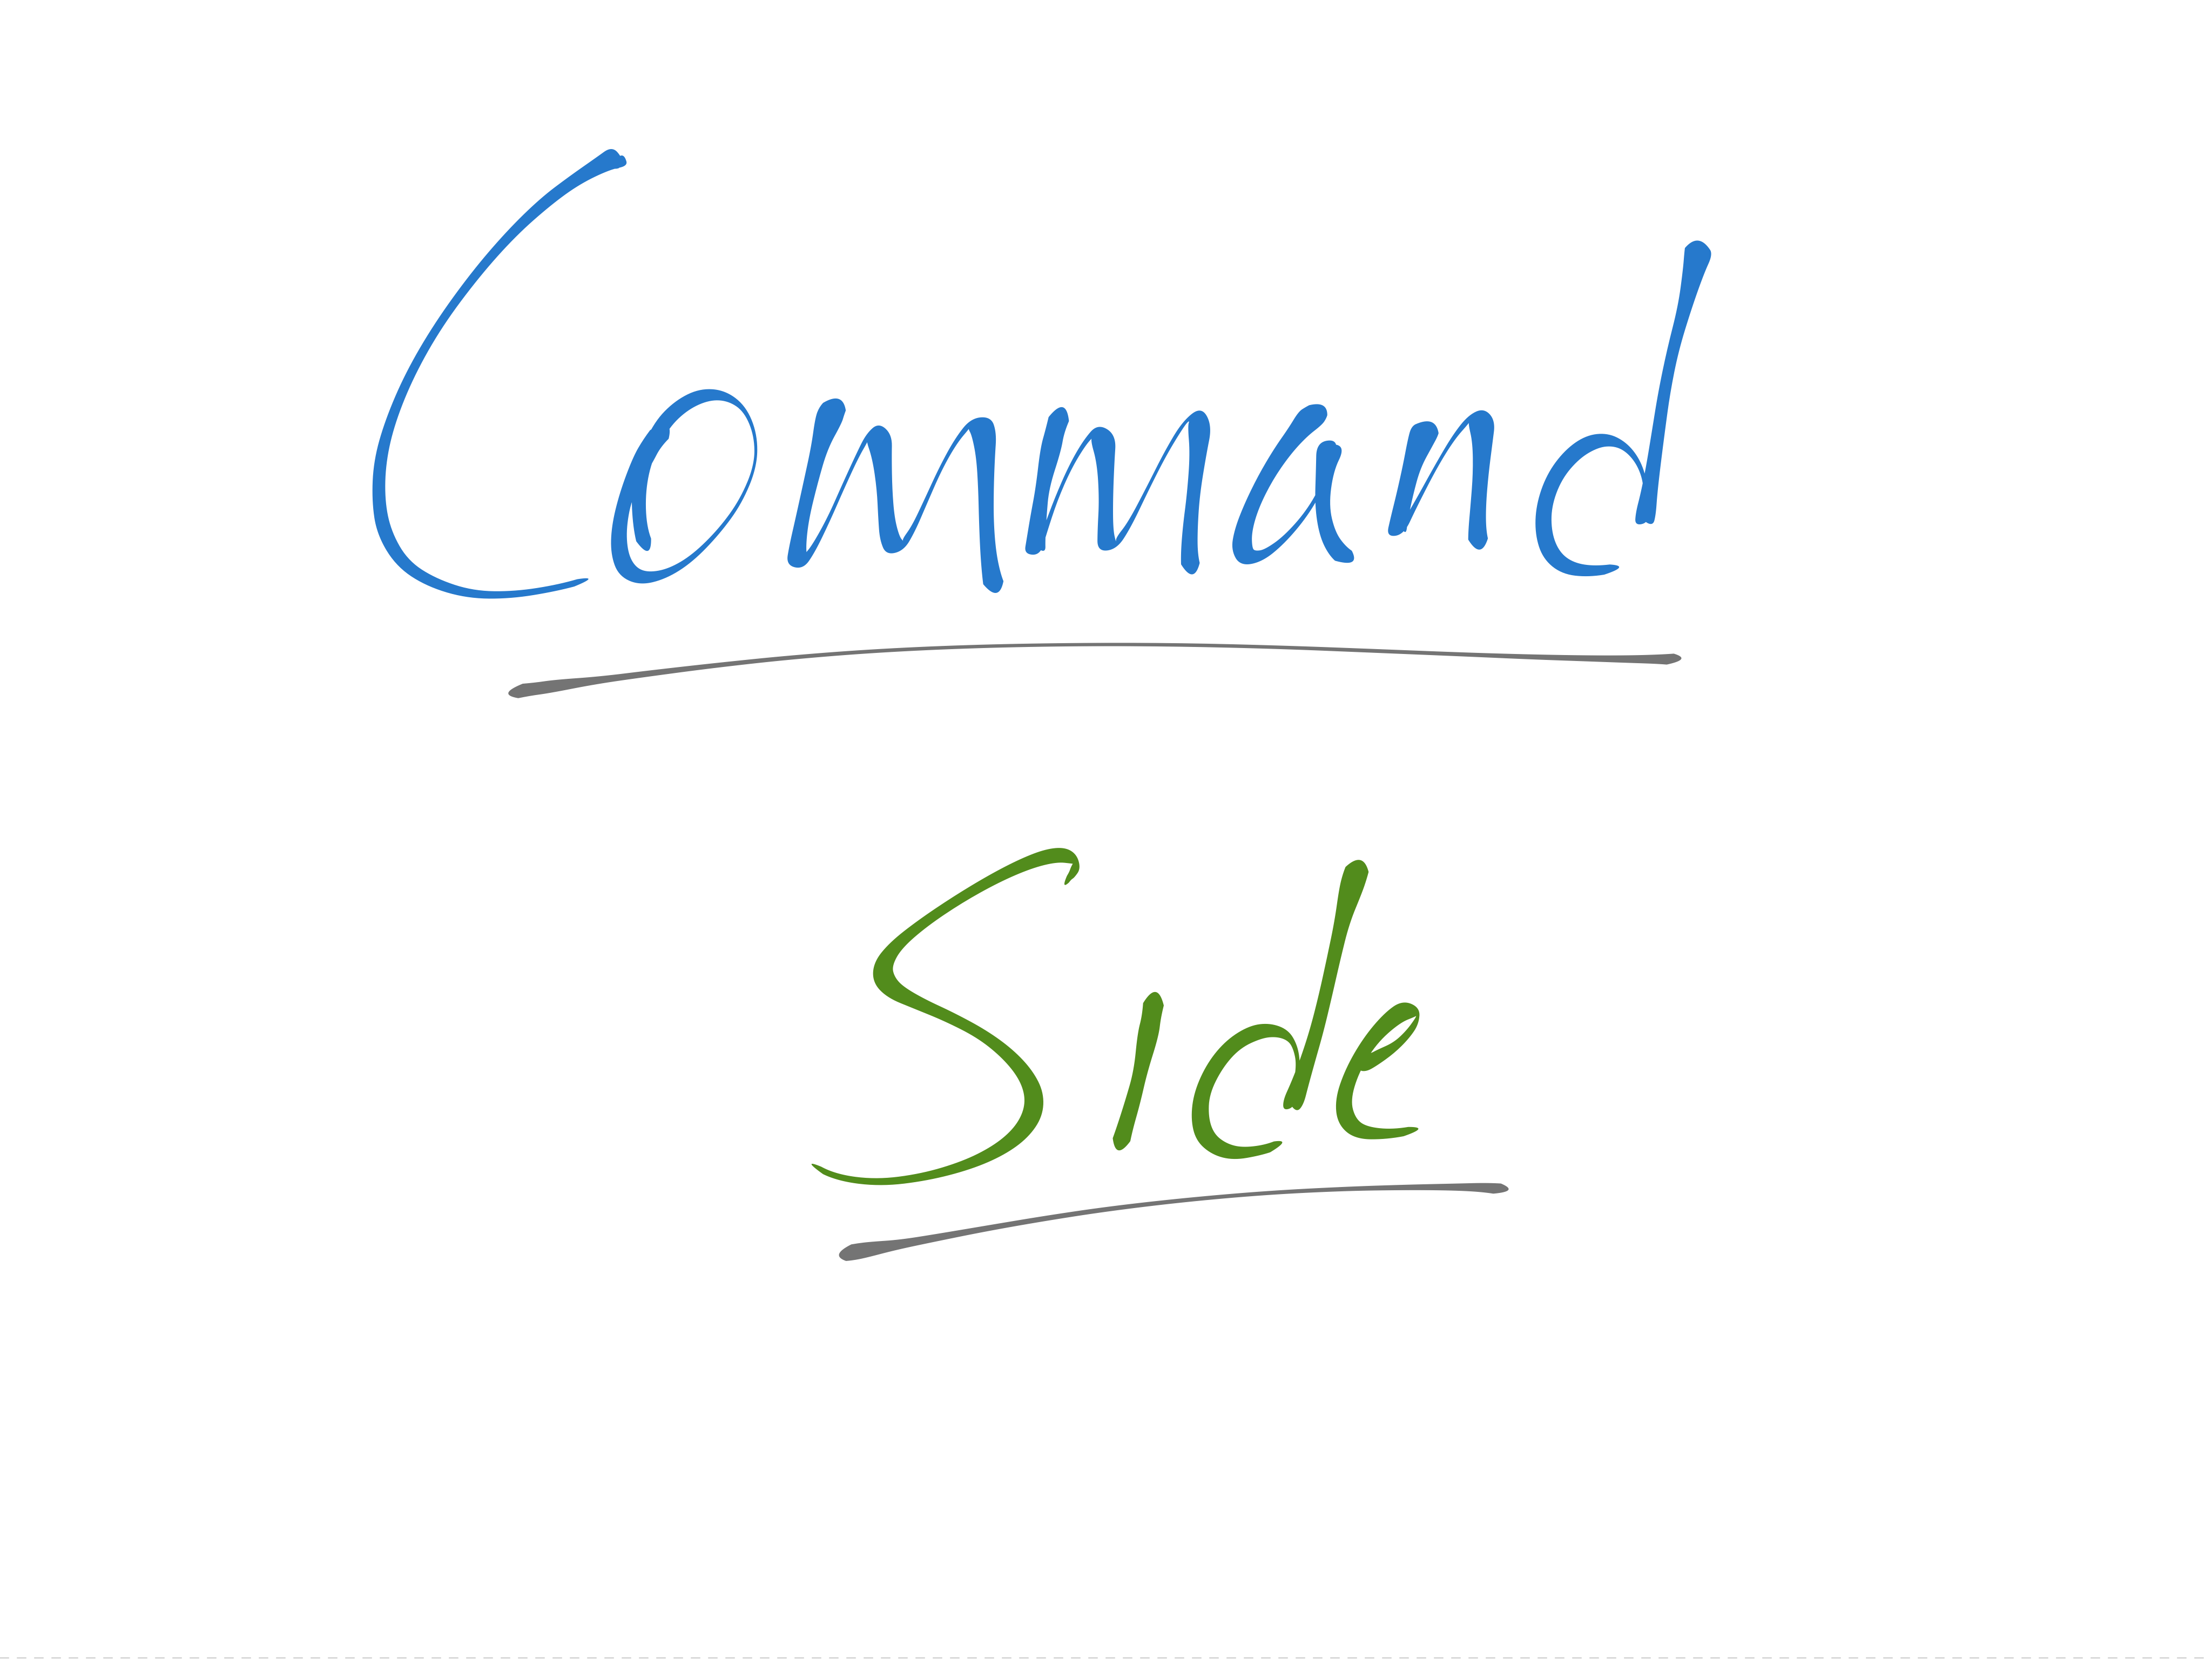 Command
Side